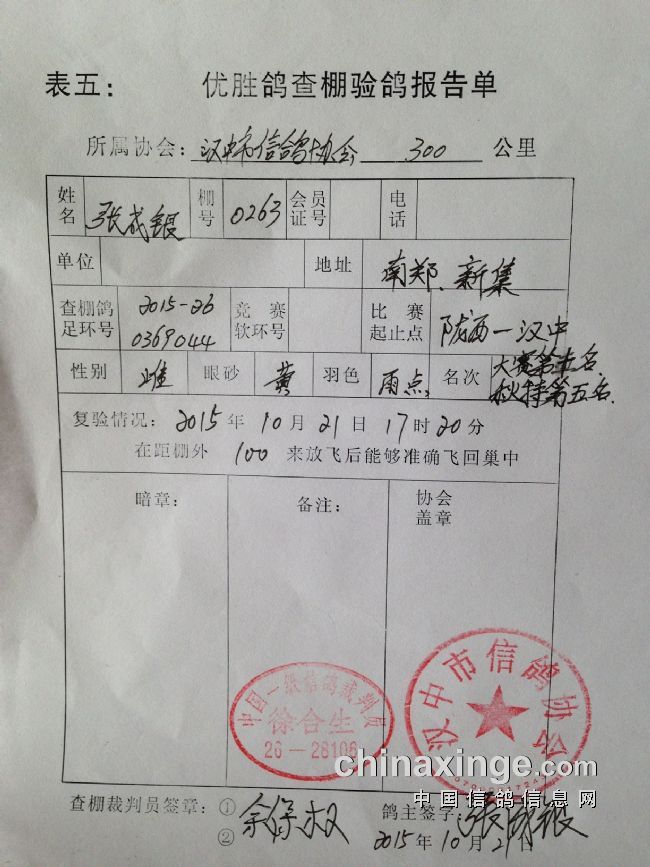 表五： 优胜鸽查棚验鸽报告单
所属协会：汉中市信鸽协会 300 公里
姓名 张成银 棚号 0263 会员证号 电话
单位 地址 南郑、新集
查棚鸽足环号 2015-26 0369044 竞赛软环号 比赛起止点 陇西—汉中
性别 雌 眼砂 黄 羽色 雨点 名次 大赛第 名
秋特第五名
复验情况：2015年10月21日17时20分
在距棚外 100 来放飞后能够准确飞回巢中
暗章： 备注： 协会盖章
中国一级信鸽裁判员
徐合生
26－28106
汉中市信鸽协会
chinaxinge.com
中国信鸽信息网
查棚裁判员签章：① 余保汉 鸽主签字：张成银
②
2015年10月21日